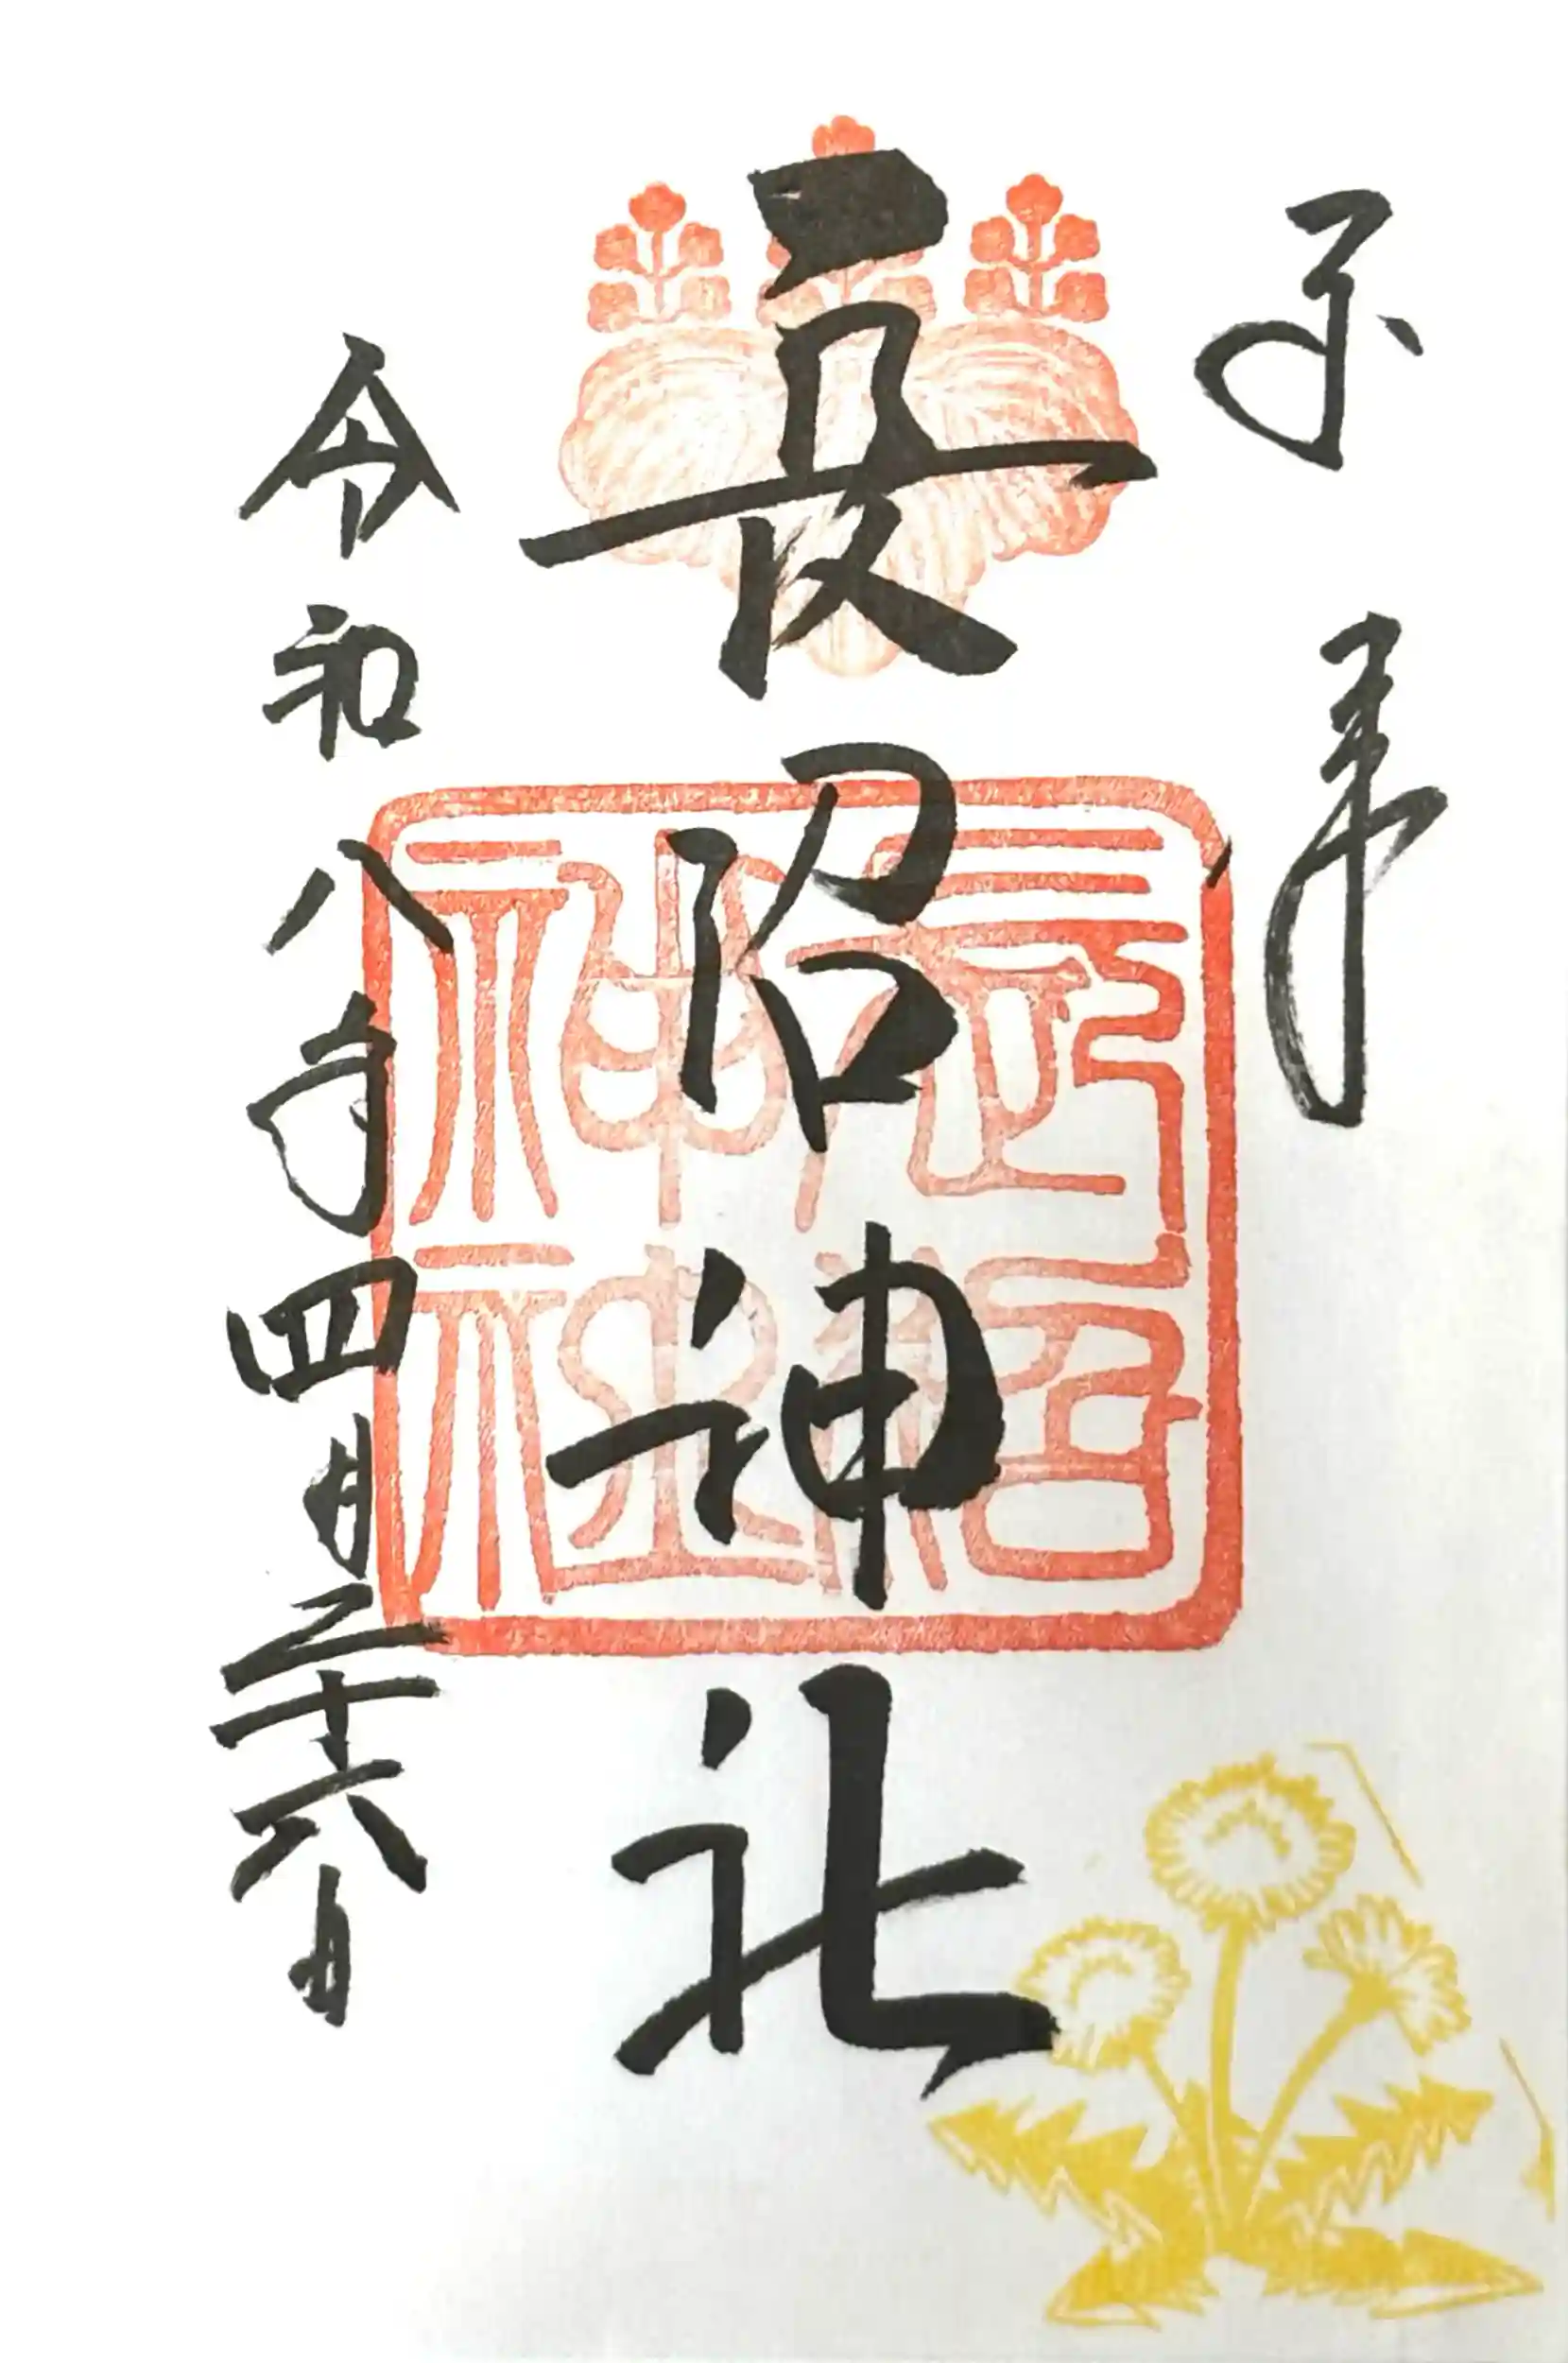 奉拝
長沼神社
令和八年四月二十六日
長沼神社